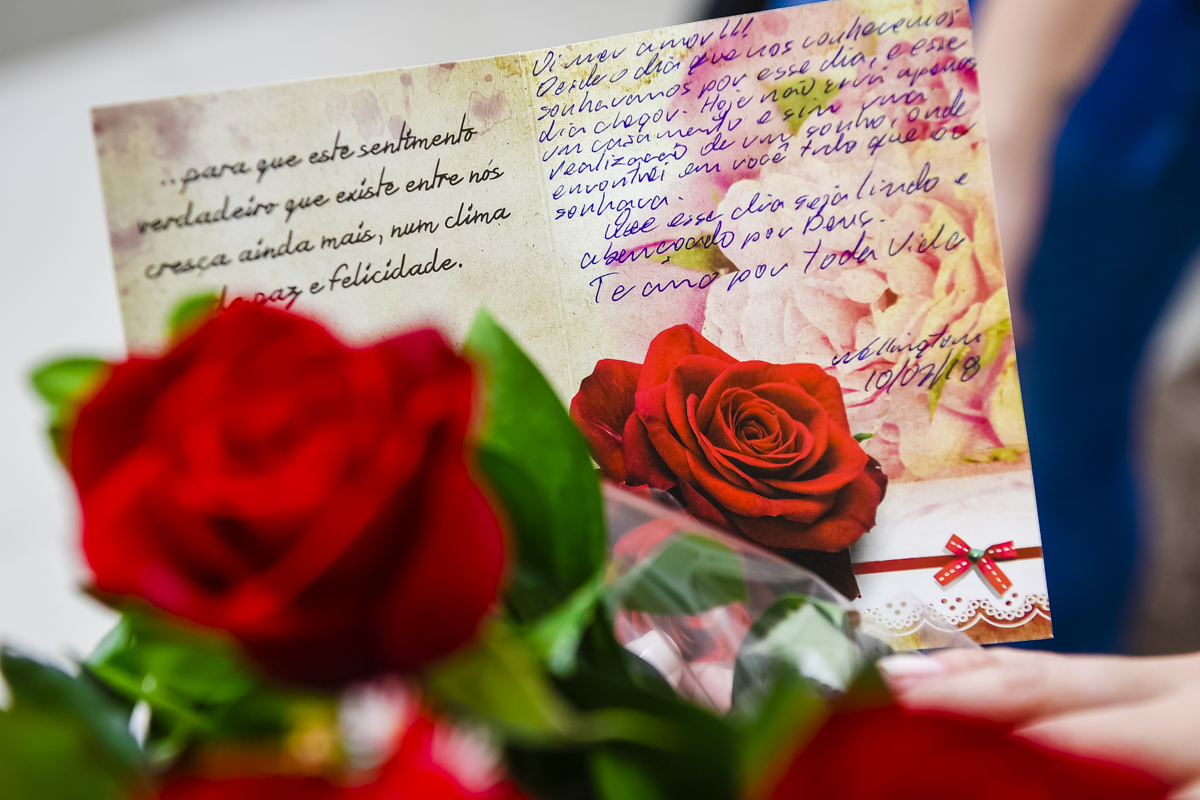 ...para que este sentimento
verdadeiro que existe entre nós
cresça ainda mais, num clima
de paz e felicidade.
Oi meu amor!!!
Desde o dia que nos conhecemos
sonhavamos por esse dia, e esse
dia chegou. Hoje não será apenas
um casamento e sim uma
realização de um sonho, onde
encontrei em você tudo que eu
sonhava.
Que esse dia seja lindo e
abençoado por Deus.
Te amo por toda vida
Wellington
10/02/18